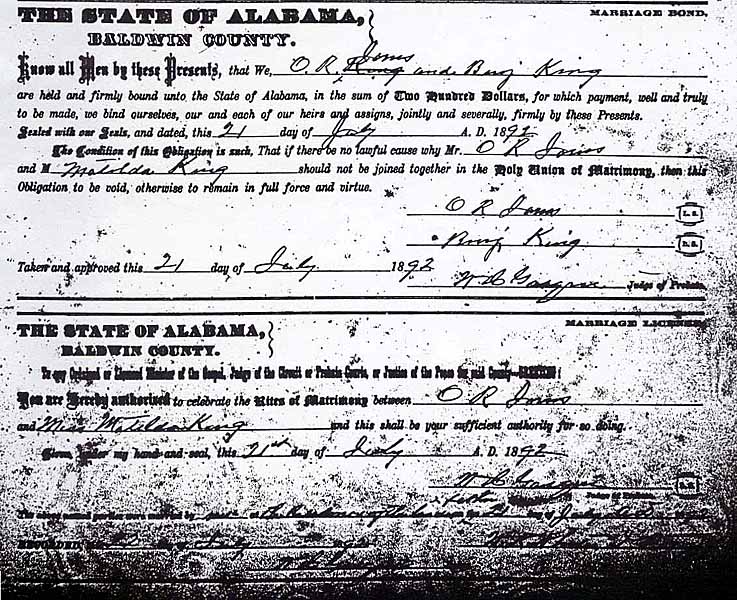 THE STATE OF ALABAMA,
MARRIAGE BOND.
BALDWIN COUNTY.
Jones
Know all Men by these Presents, that We, O. R. King and Benj King
are held and firmly bound unto the State of Alabama, in the sum of Two Hundred Dollars, for which payment, well and truly
to be made, we bind ourselves, our and each of our heirs and assigns, jointly and severally, firmly by these Presents.
Sealed with our Seals, and dated, this 21 day of July A. D. 1892
The Condition of this Obligation is such, That if there be no lawful cause why Mr. O R Jones
and M Matilda King should not be joined together in the Holy Union of Matrimony, then this
Obligation to be void, otherwise to remain in full force and virtue.
O R Jones L. S.
Benj King L. S.
Taken and approved this 21 day of July 1892
Judge of Probate
THE STATE OF ALABAMA,
MARRIAGE LICENSE
BALDWIN COUNTY.
To any Ordained or Licensed Minister of the Gospel, Judge of the Circuit or Probate Courts, or Justice of the Peace for said County—GREETING:
You are Hereby authorized to celebrate the Rites of Matrimony between O R Jones
and Miss Matilda King and this shall be your sufficient authority for so doing.
Given under my hand and seal, this 21st day of July A. D. 1892
Judge of Probate
The above named parties were married by
RECORDED